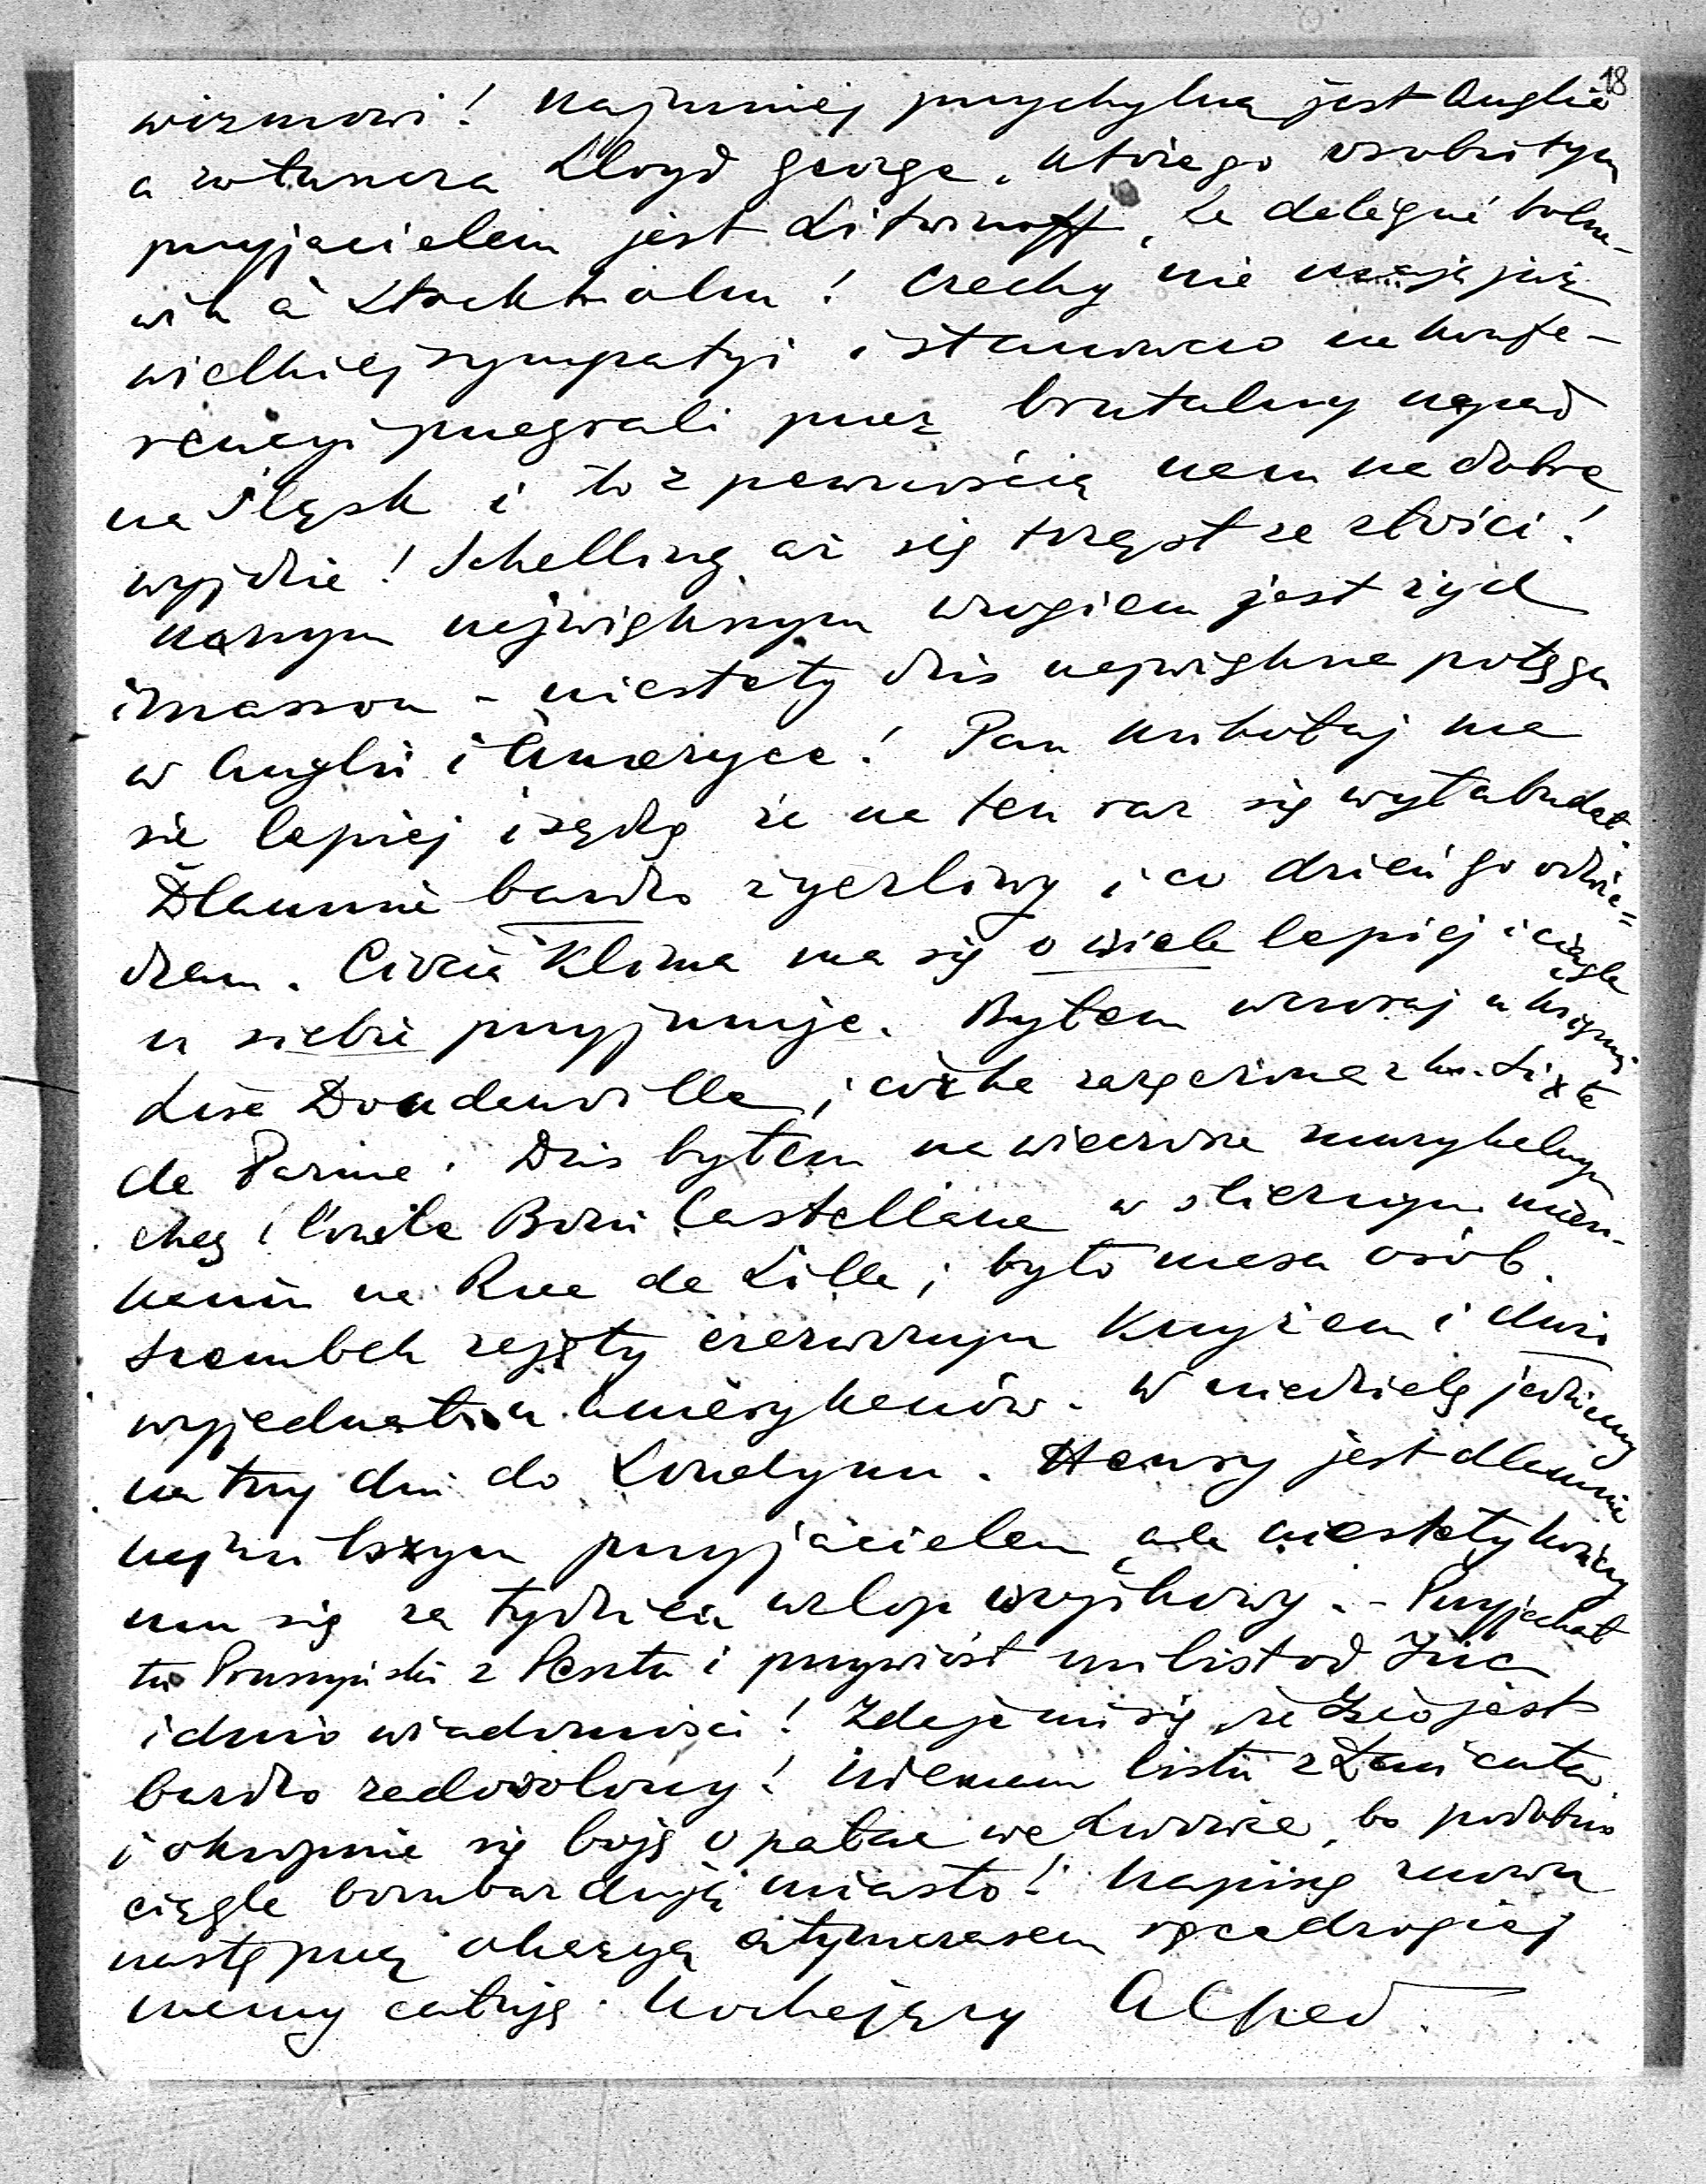 18
wizmowi! Najmniej przychylną jest Anglia
a zwłaszcza Lloyd George, którego osobistym
przyjacielem jest Litwinoff, le délégué bolsze-
wik à Stockholm! Czechy nie mają już
wielkiej sympatyi i stanowczo na konfe-
rencyi przegrali przez brutalny napad
na Śląsk i to z pewnością nam na dobre
wyjdzie! Schelling aż się trząsł ze złości!
Naszym największym wrogiem jest żyd
i masson - niestety dziś największa potęga
w Anglii i Ameryce! Pan Mikołaj ma
się lepiej i sądzę że na ten raz się wyłabudał.
Dlamnie bardzo życzliwy i co dzień go odwie=
dzam. Ciocia Klima ma się o wiele lepiej i ciągle
u siebie przyjmuje. Byłem wczoraj u księżnej
Lise Doudeauville, córka zaręczona z ks. Sixte
de Parme. Dziś byłem na wieczorze muzykalnym
chez l'oncle Boni Castellane w ślicznym miesz-
kaniu na Rue de Lille; było masa osób.
Szembek zajęty czerwonym Krzyżem i dużo
wyjednał u Amerykanów. W niedzielę jedziemy
na trzy dni do Londynu. Henry jest dlamnie
najmilszym przyjacielem ale niestety kończy
mu się za tydzień urlop wojskowy. - Przyjechał
tu Pruszyński z Pesztu i przywiózł mi list od
i dużo wiadomości! Zdaje mi się, że jest
bardzo zadowolony! Niemam listu z Łańcuta
i okropnie się boję o pałac we Lwowie, bo podobno
ciągle bombardują miasto! Napiszę znowu
następną okazyą a tymczasem rące drogiej
mamy całuję. Kochający Alfred.